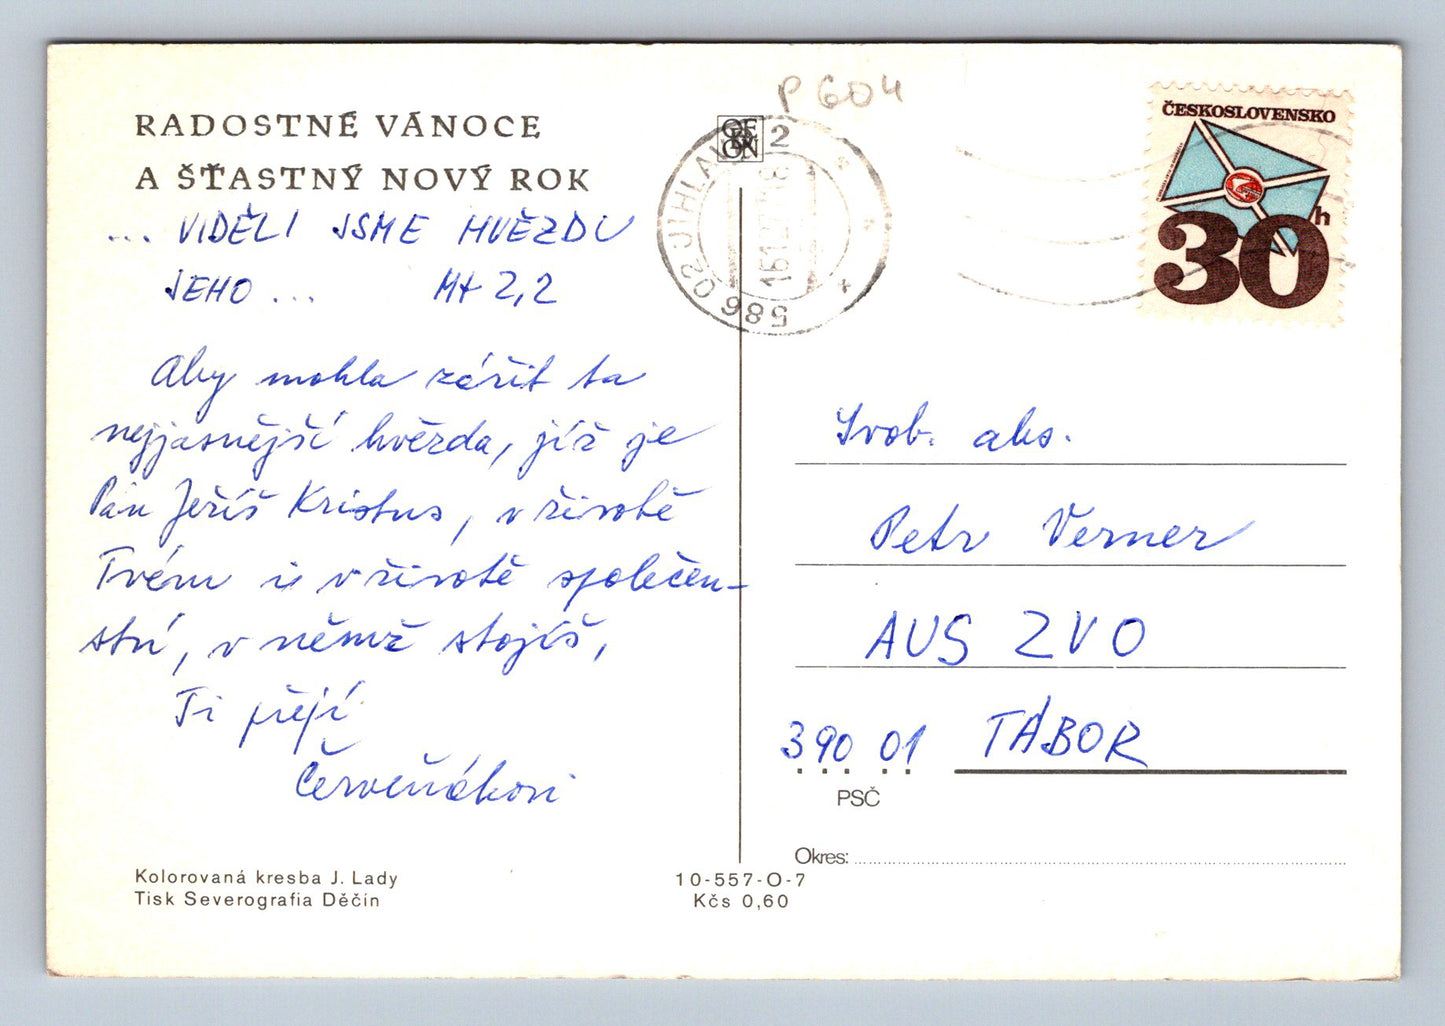 RADOSTNÉ VÁNOCE
A ŠŤASTNÝ NOVÝ ROK
... VIDĚLI JSME HVĚZDU
JEHO ... Mt 2,2
Aby mohla zářit ta
nejjasnější hvězda, jíž je
Pán Ježíš Kristus, v životě
Tvém i v životě společen-
ství, v němž stojíš,
Ti přejí
Červeňákovi
Kolorovaná kresba J. Lady
Tisk Severografia Děčín
10-557-O-7
Kčs 0,60
P 604
586 02 JIHLAVA 2
ČESKOSLOVENSKO
30h
Svob. abs.
Petr Verner
AUS ZVO
390 01 TÁBOR
PSČ
Okres: